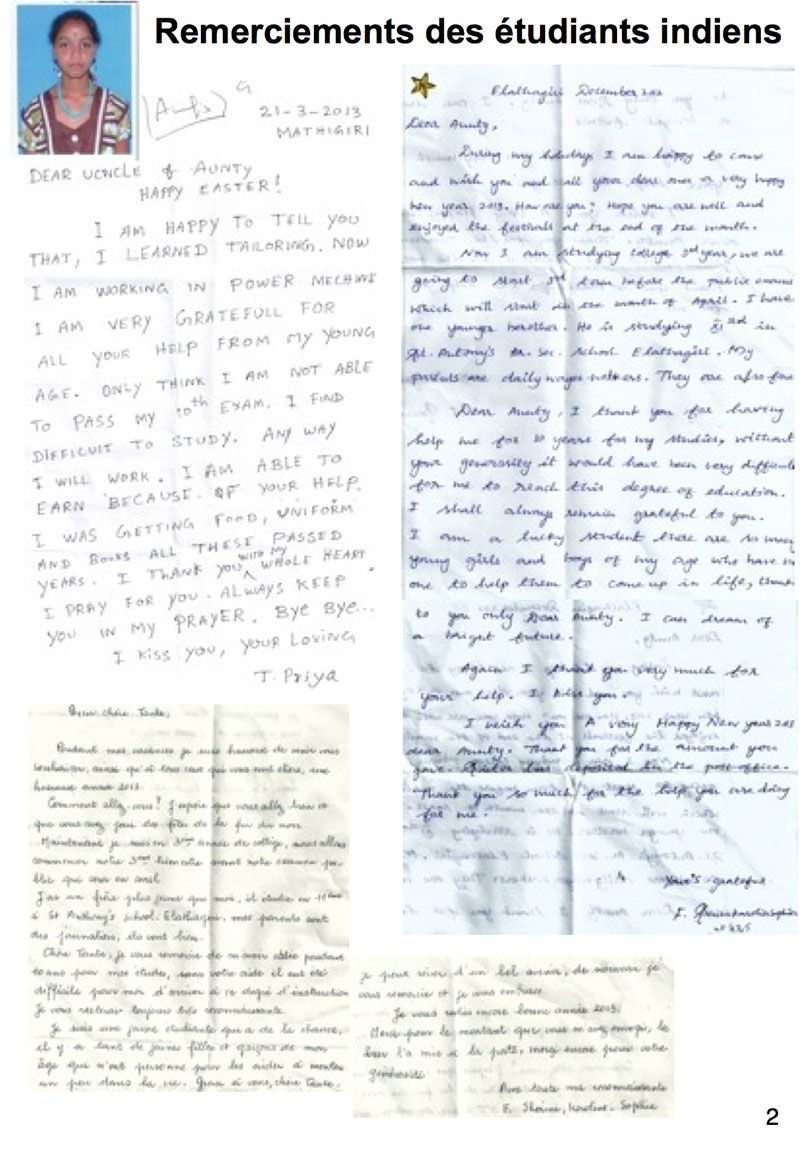 Remerciements des étudiants indiens
21-3-2013
MATHIGIRI
DEAR UCNCLE & AUNTY
HAPPY EASTER!
I AM HAPPY TO TELL YOU
THAT, I LEARNED TAILORING. NOW
I AM WORKING IN POWER MECHINE
I AM VERY GRATEFULL FOR
ALL YOUR HELP FROM MY YOUNG
AGE. ONLY THINK I AM NOT ABLE
TO PASS MY 10th EXAM. I FIND
DIFFICUIT TO STUDY. ANY WAY
I WILL WORK. I AM ABLE TO
EARN BECAUSE OF YOUR HELP.
I WAS GETTING FOOD, UNIFORM
AND BOOKS ALL THESE PASSED
YEARS. I THANK YOU with my WHOLE HEART
I PRAY FOR YOU. ALWAYS KEEP
YOU IN MY PRAYER. BYE BYE...
I KISS YOU, YOUR LOVING
T. Priya
Elathagiri December
Dear Aunty,
During my holidays I am happy to come
and wish you and all your dear ones a very happy
new year 2013. How are you? Hope you are well and
enjoyed the festivals at the end of the month.
Now I am studying college 3rd year, we are
going to start 3rd term before the public exams
which will start in the month of April. I have
one younger brother. He is studying in
St. Antony's Hr. Sec. School Elathagiri. My
parents are daily wages They are also fine
Dear Aunty, I thank you for having
help me for 10 years for my studies, without
your generosity it would have been very difficult
for me to reach this degree of education.
I shall always remain grateful to you.
I am a lucky student there are so many
young girls and boys of my age who have no
one to help them to come up in life, thank
to you only Dear Aunty. I can dream of
a bright future.
Again I thank you very much for
your help. I kiss you.
I wish you A very Happy New year
dear Aunty. Thank you for the amount you
gave. deposited in the post office.
Thank you so much for the help you are doing
for me.
Your's grateful
Bien chère Tante,
Pendant mes vacances je suis heureuse de venir vous
souhaiter, ainsi qu'à tous ceux qui vous sont chers, une
heureuse année 2013.
Comment allez-vous? J'espère que vous allez bien et
que vous avez joui des fêtes de la fin du mois.
Maintenant je suis en 3ème année de collège, nous allons
commencer notre 3ème trimestre avant notre examen pu-
blic qui sera en avril
J'ai un frère plus jeune que moi, il étudie en
à St Anthony's school. Elathagiri, mes parents sont
des journaliers, ils vont bien.
Chère Tante, je vous remercie de m'avoir aidée pendant
10 ans pour mes études, sans votre aide il eut été
difficile pour moi d'arriver à ce degré d'instruction
Je vous resterai toujours très reconnaissante.
Je suis une jeune étudiante qui a de la chance,
il y a tant de jeunes filles et garçons de mon
âge qui n'ont personne pour les aider à monter
un peu dans la vie. Grâce à vous, chère Tante,
je peux rêver d'un bel avenir, de nouveau je
vous remercie et je vous embrasse
Je vous redis encore bonne année 2013.
Merci pour le montant que vous m'avez envoyé, la
l'a mis à la poste, merci encore pour votre
générosité
Avec toute ma reconnaissance
Sophie
2